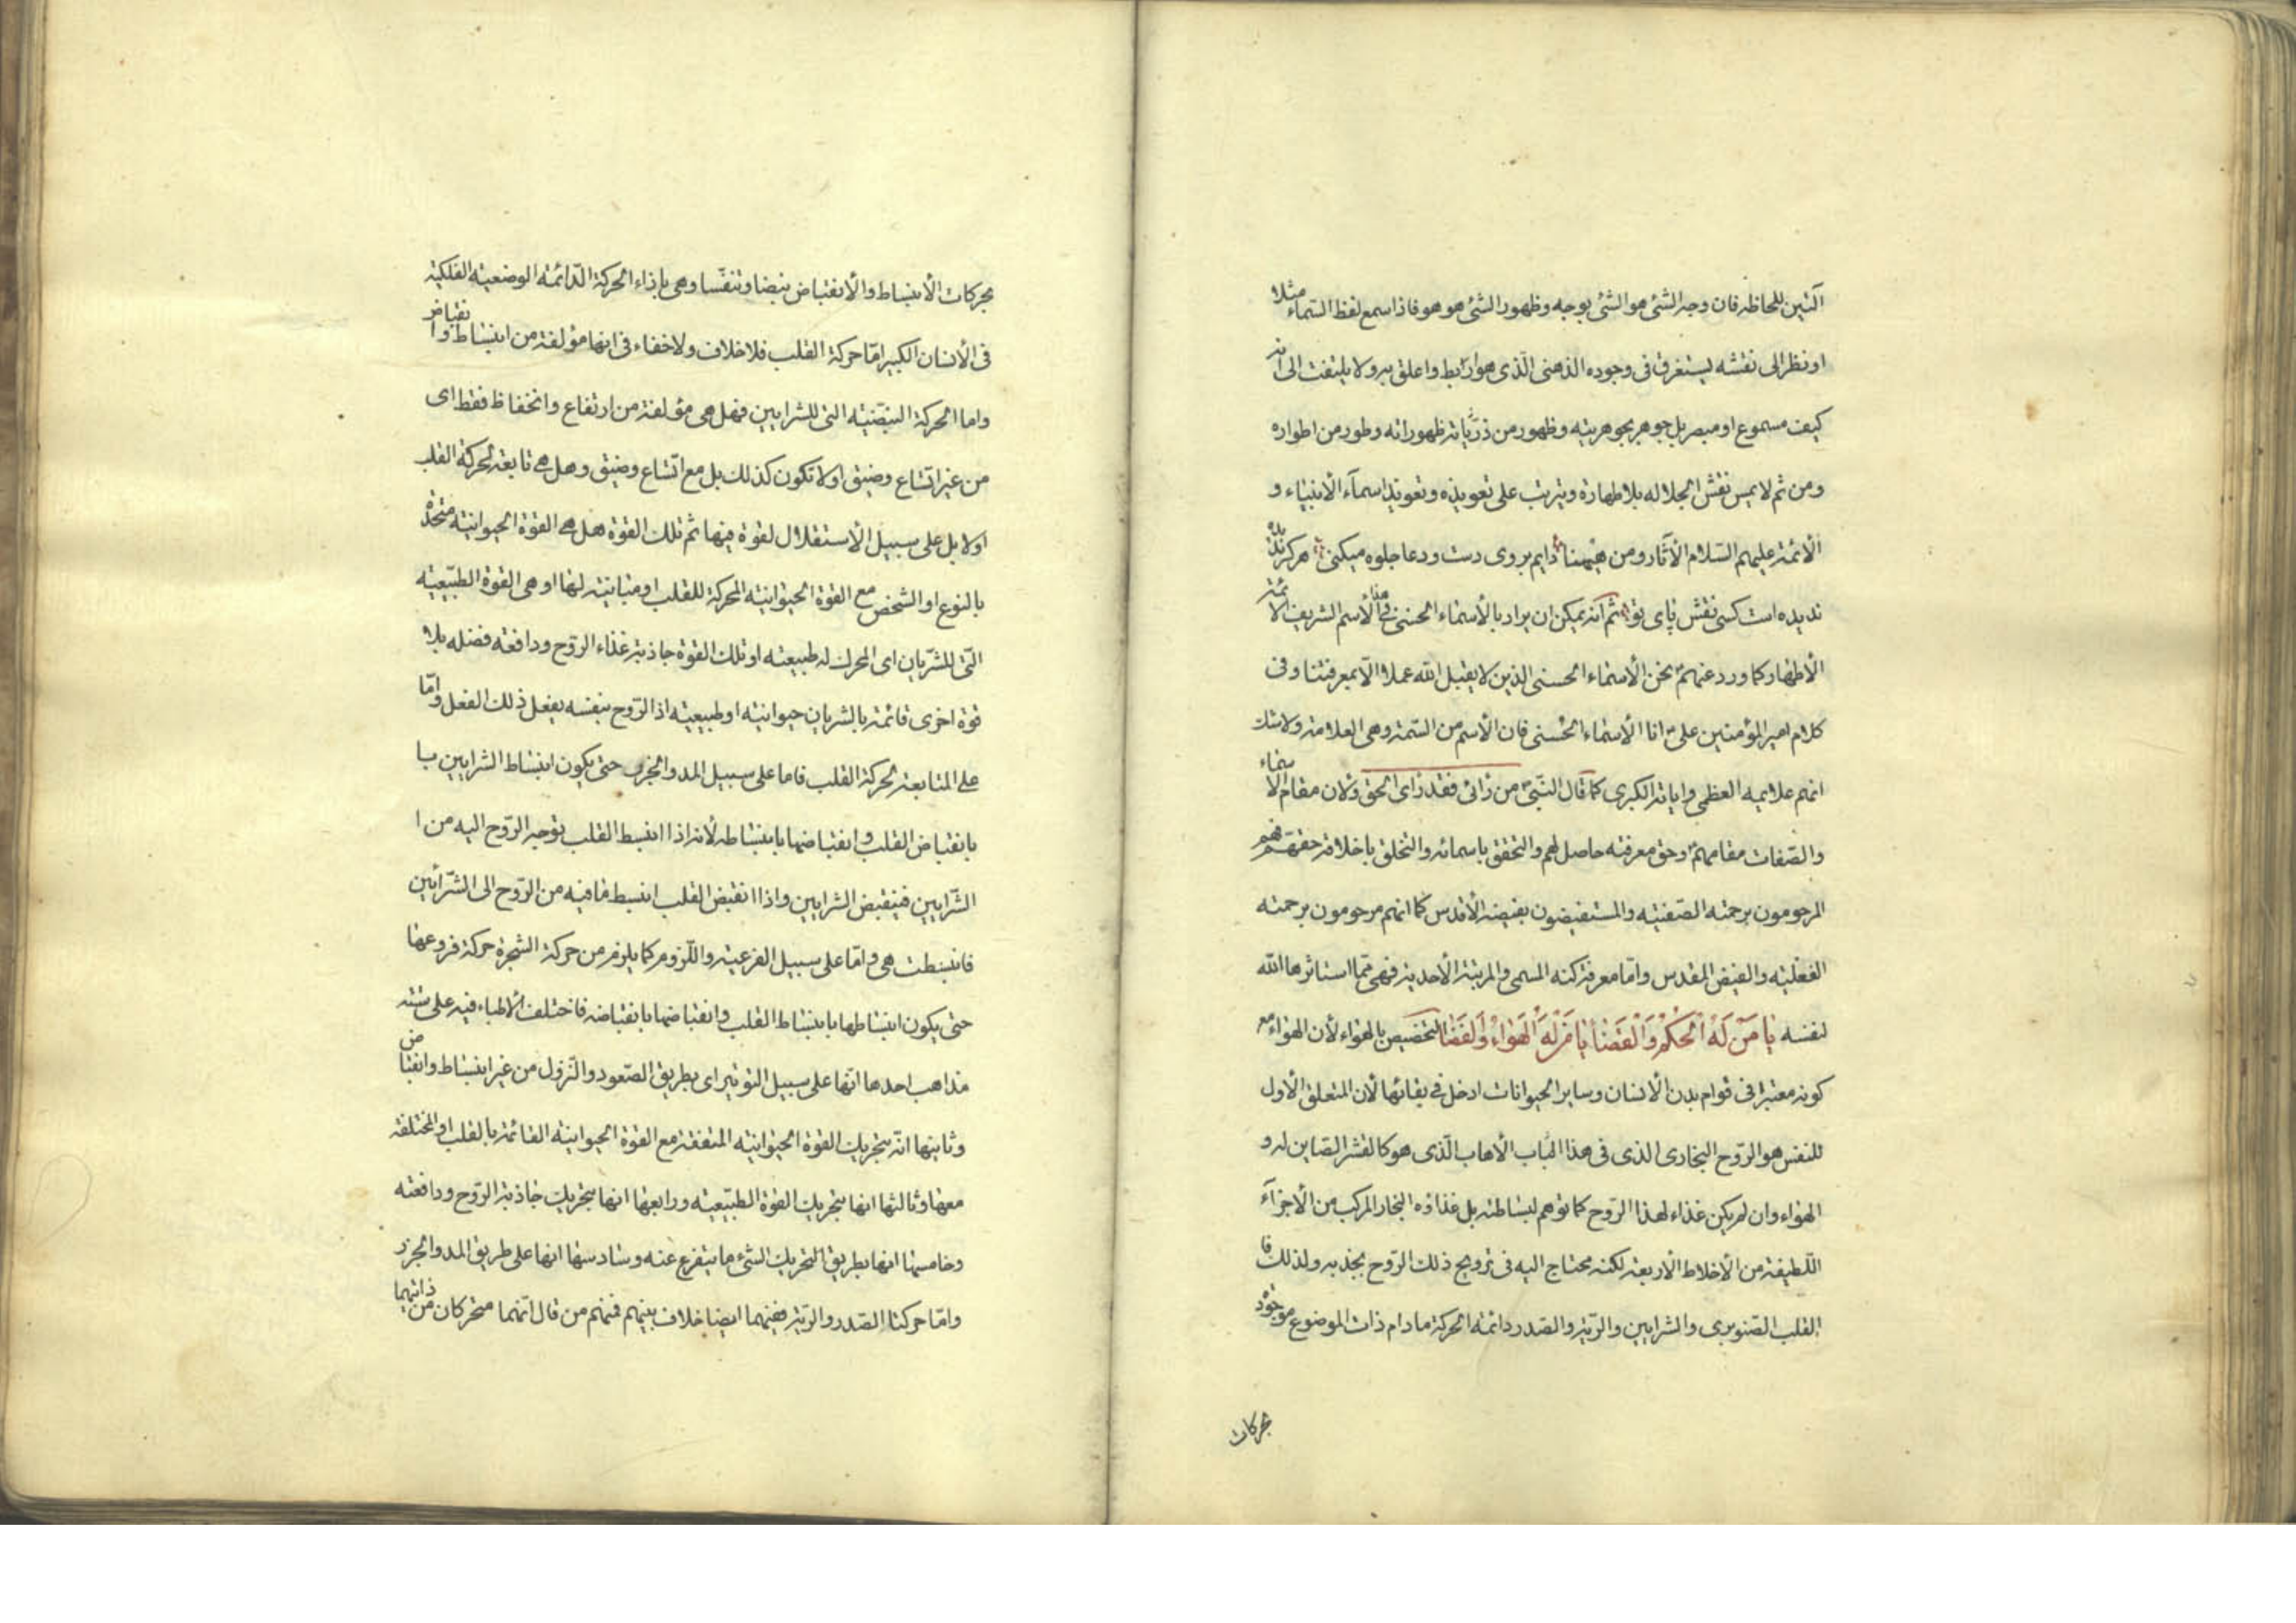 آلتين للحاظه فان وجه الشئ هو الشئ بوجه وظهور الشئ هو هو فاذا سمع لفظ السماء مثلا
او نظر الى نقشه يستغرق فى وجوده الذهنى الّذى هو اربط واعلق به ولا يلتفت الى انه
كيف مسموع او مبصر بل جوهر بجوهريته وظهور من ظهوراته وطور من اطواره
ومن ثم لا يمس نقش الجلاله بلا طهارة ويترتب على تعويذه وتعويذ اسمآء الأنبياء و
الأئمة عليهم السّلام الآثار ومن هيهنا دايم بروى دست ودعا جلوه ميكنى هركز
نديده است كسى نقش پاى تو ثم انه يمكن ان يراد بالأسماء الحسنى فى هذا الأسم الشريف الأئمة
الأطهار كما ورد عنهم نحن الأسماء الحسنى الذين لا يقبل الله عملا الّا بمعرفتنا وفى
كلام امير المؤمنين على انا الأسماء الحسنى فان الأسم من السّمة وهى العلامة ولا شك
انهم علايمه العظمى واياته الكبرى كما قال النّبى من رانى فقد راى الحق ولان مقام الأسماء
والصّفات مقامهم وحق معرفته حاصل لهم والتحقق باسمائه والتخلق باخلاقه حقهم فهم
المرحومون برحمته الصّفتيه والمستفيضون بفيضه الأقدس كما انهم مرحومون برحمته
الفعليّه والفيض المقدس وامّا معرفة كنه المسمى والمرتبة الأحدية فهى ممّا استاثرها الله
لنفسه يا مَنْ لَهُ الْحُكْمُ وَالْقَضٰا يا مَنْ لَهُ الْهَوٰاءُ وَالْفَضٰا التخصيص بالهواء لأن الهواء مع
كونه معتبرا فى قوام بدن الأنسان وساير الحيوانات ادخل فى بقائها لأن المتعلق الأول
للنفس هو الرّوح البخارى الذى فى هذا الباب الأهاب الّذى هو كالقشر الصّاين له و
الهواء وان لم يكن غذاء لهذا الرّوح كما توهم لبساطته بل غذاؤه البخار المركب من الأجزآء
اللّطيفة من الأخلاط الأربعة لكنه محتاج اليه فى ترويح ذلك الرّوح بجذبه ولذلك فا
القلب الصّنوبرى والشرايين والرّية والصّدر دائمة الحركة ما دام ذات الموضوع موجودة
بحركات
بحركات الأنبساط والأنقباض نبضا وتنفّسا وهى بإزاء الحركة الدّائمة الوضعية الفلكية
فى الأنسان الكبير امّا حركة القلب فلا خلاف ولا خفاء فى انها مؤلفة من انبساط وانقباض
واما الحركة النّبضيّة التى للشرايين فهل هى مؤلفة من ارتفاع وانخفاظ فقط اى
من غير اتّساع وضيق اولا تكون كذلك بل مع اتّساع وضيق وهل هى تابعة لحركة القلب
اولا بل على سبيل الأستقلال لقوة فيها ثم تلك القوّة هل هى القوّة الحيوانيّة متحدة
بالنوع او الشخص مع القوة الحيوانيّه المحركة للقلب او مباينة لها او هى القوّة الطّبيعيّه
الّتى للشّريان اى المحرك له طبيعته او تلك القوّة جاذبة غذاء الرّوح ودافعة فضله بلا
قوّة اخرى قائمة بالشريان حيوانيّه او طبيعيّه اذ الرّوح بنفسه يفعل ذلك الفعل وامّا
على المتابعة لحركة القلب فاما على سبيل المد والجزر حتى يكون انبساط الشرايين با
بانقباض القلب وانقباضها بانبساطه لأنه اذا انبسط القلب توجه الرّوح اليه من ا
الشّرايين فينقبض الشرايين واذا انقبض القلب انبسط ما فيه من الرّوح الى الشّرايين
فانبسطت هى وامّا على سبيل الفرعيّة واللّزوم كما يلزم من حركة الشجرة حركة فروعها
حتى يكون انبساطها بانبساط القلب وانقباضها بانقباضه فاختلف الأطباء فيه على ستّه
مذاهب احدها انّها على سبيل التوتير اى بطريق الصّعود والنّزول من غير انبساط وانقباض
وثانيها انّه بتحريك القوّة الحيوانيّه المتفقة مع القوّة الحيوانيّه القائمة بالقلب او المختلفة
معها وثالثها انها بتحريك القوّة الطبيعيّه ورابعها انها بتحريك جاذبة الرّوح ودافعته
وخامسها انها بطريق التحريك الشئ ما يتفرع عنه وسادسها انها على طريق المد والجزر
وامّا حركتا الصّدر والرّية ففيهما ايضا خلاف بينهم فمنهم من قال انّهما متحركان من ذاتهما